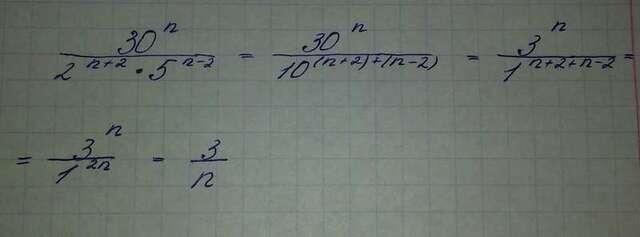 30^n / (2^(n+2) · 5^(n-2)) = 30^n / 10^((n+2)+(n-2)) = 3^n / 1^(n+2+n-2) =
= 3^n / 1^(2n) = 3 / n